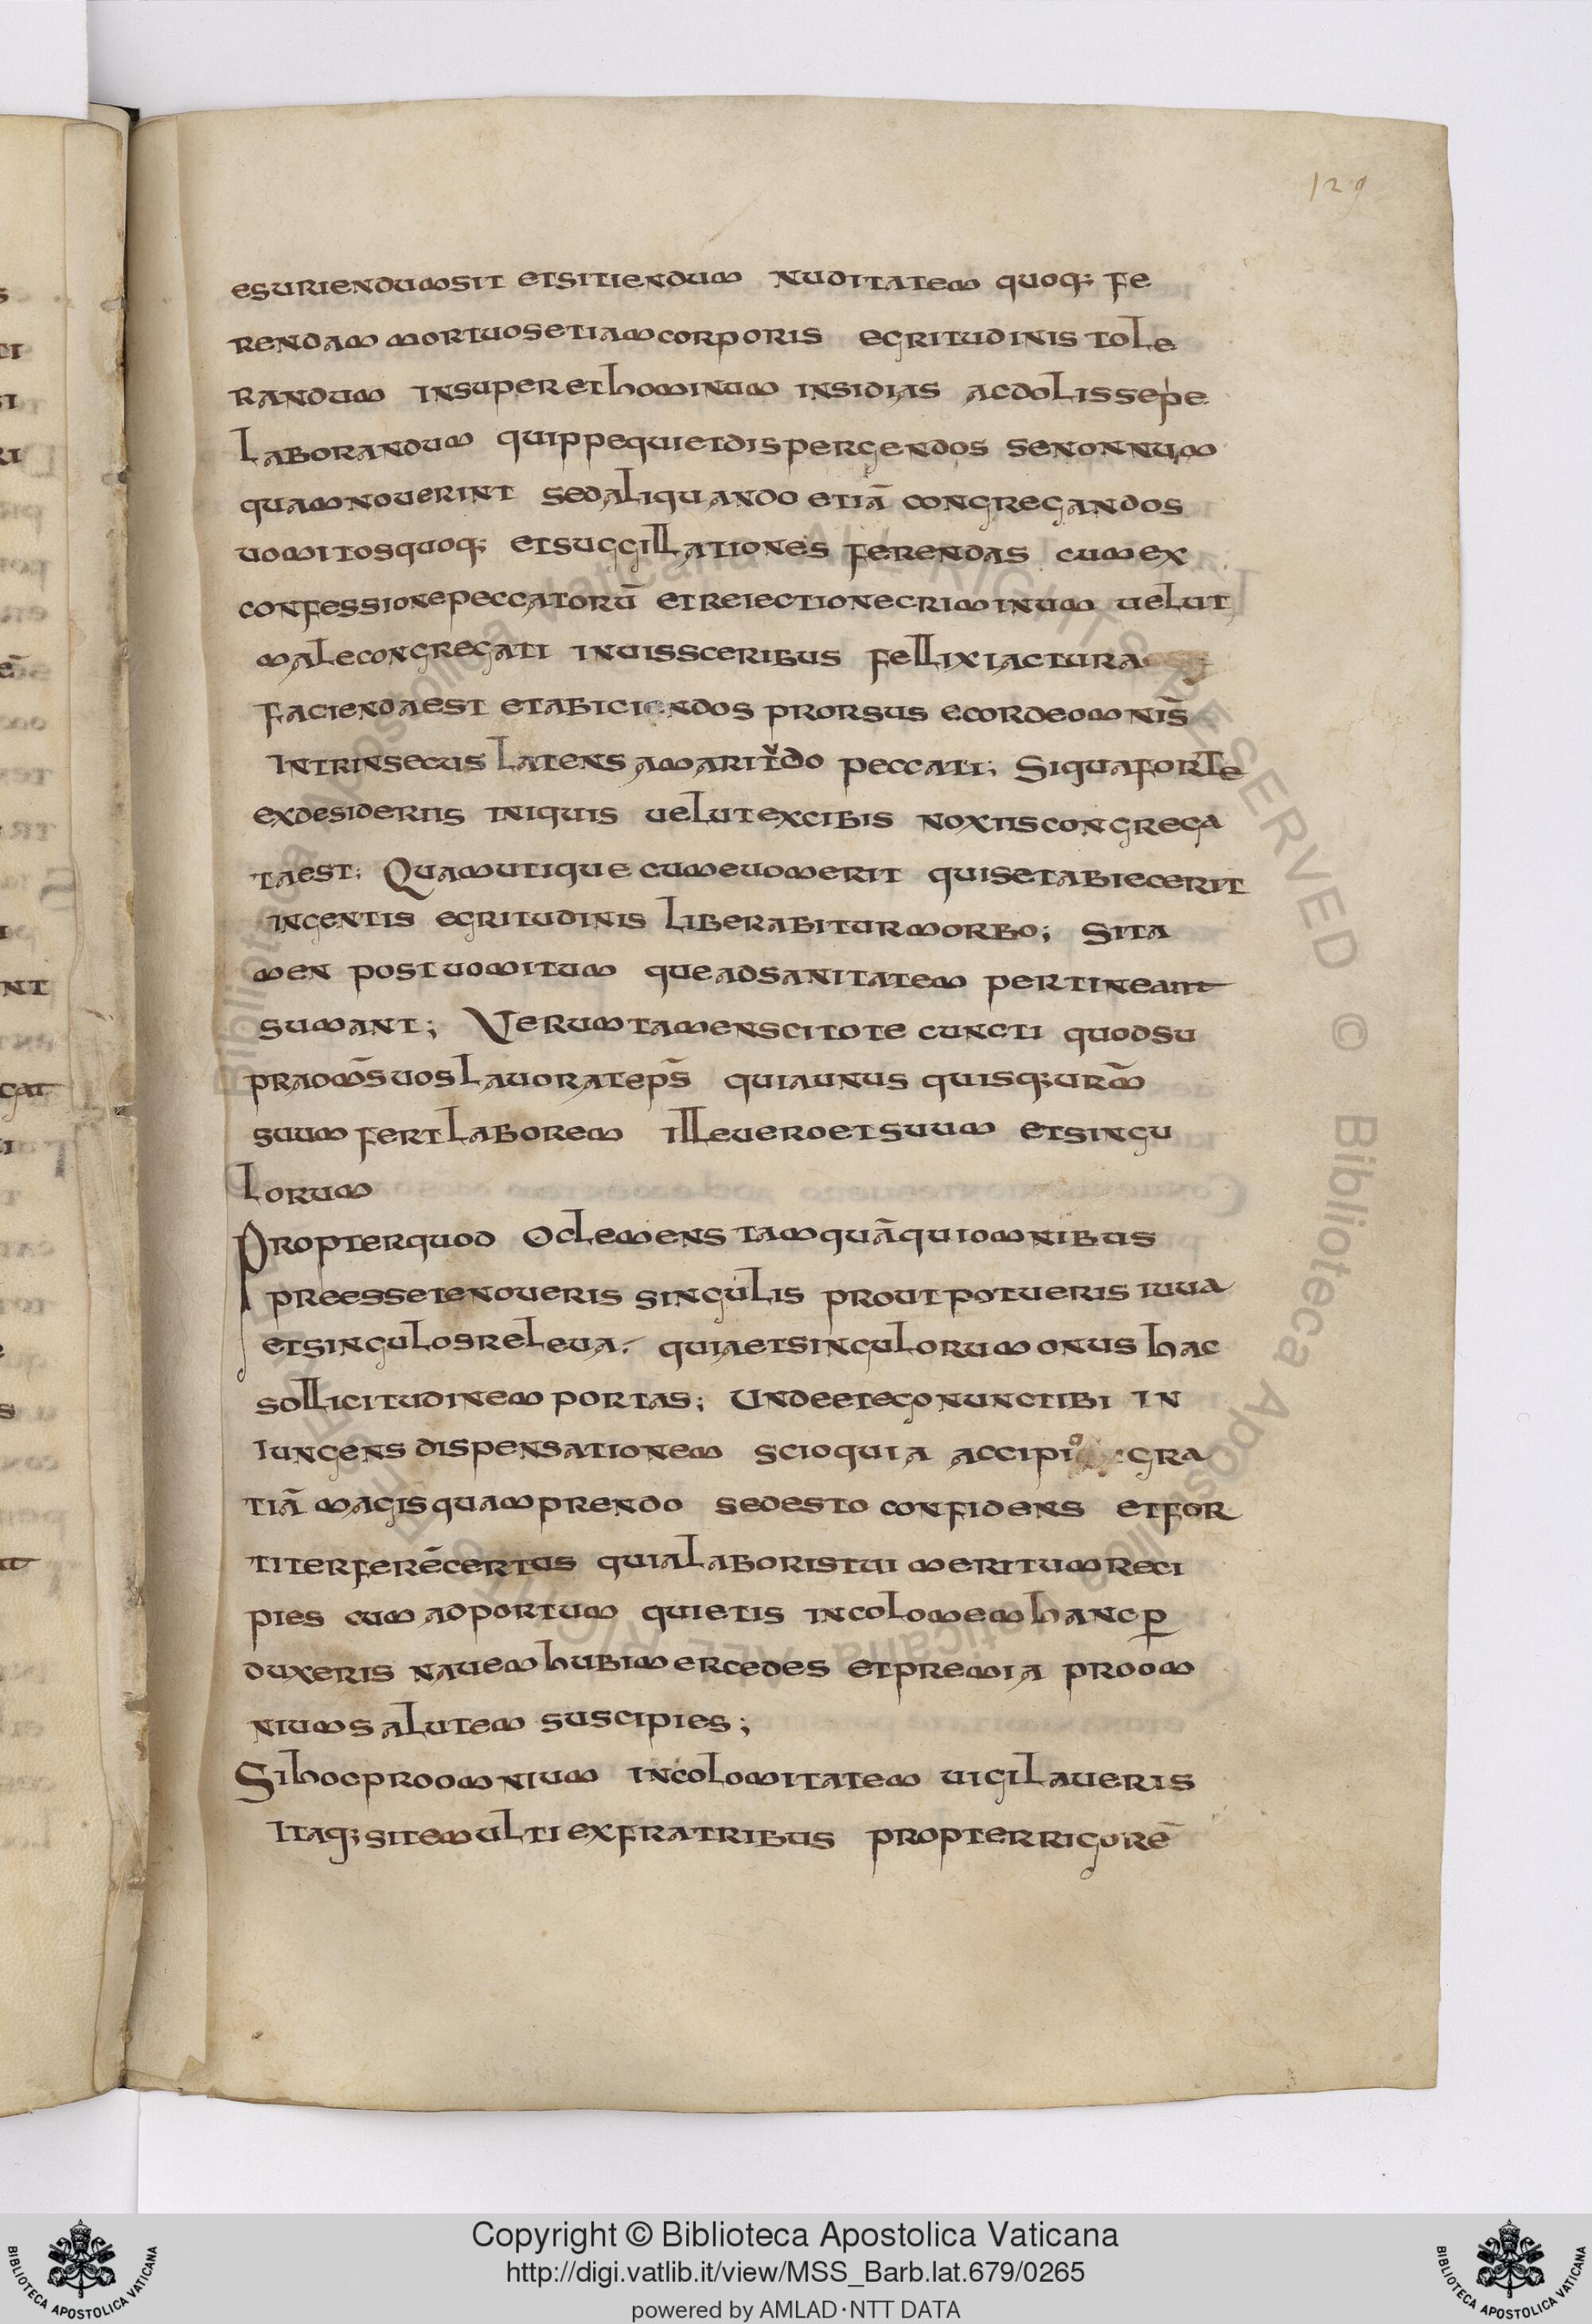 129
esuriendum sit et sitiendum nuditatem quoq; fe
rendam mortuos etiam corporis egritudinis tole
randum insuper et hominum insidias ac dolis sepe
laborandum quippe qui et dispergendos se non num
quam noverint sed aliquando etiā congregandos
uomitos quoq; et suggillationes ferendas cum ex
confessione peccatorū et reiectione criminum uelut
male congregati in uissceribus fellix iactura
facienda est et abiciendos prorsus e corde omnis̄
intrinsecus latens amaritudo peccati; Si qua forte
ex desideriis iniquis uelut ex cibis noxiis congrega
ta est; Quam utique cum euomerit quis et abiecerit
ingentis egritudinis liberabitur morbo; Si ta
men post uomitum que ad sanitatem pertineant
sumant; Verumtamen scitote cuncti quod su
pra om̄s uos lauorat ep̄s quia unus quisq; urm̄
suum fert laborem ille uero et suum et singu
lorum
Propter quod o clemens tamquā qui omnibus
preesse te noueris singulis prout potueris iuua
et singulos releua. quia et singulorum onus hac
sollicitudinem portas; Unde et ego nunc tibi in
iungens dispensationem scio quia accipio gra
tiā magis quam prendo sed esto confidens et for
titer ferē certus quia laboris tui meritum reci
pies cum ad portum quietis incolomem hanc p̲
duxeris nauem hubi mercedes et premia pro om
nium salutem suscipies;
Si hoc pro omnium incolomitatem uigilaueris
Itaq; si te multi ex fratribus propter rigorē
Copyright © Biblioteca Apostolica Vaticana
http://digi.vatlib.it/view/MSS_Barb.lat.679/0265
powered by AMLAD·NTT DATA
BIBLIOTECA APOSTOLICA VATICANA
BIBLIOTECA APOSTOLICA VATICANA